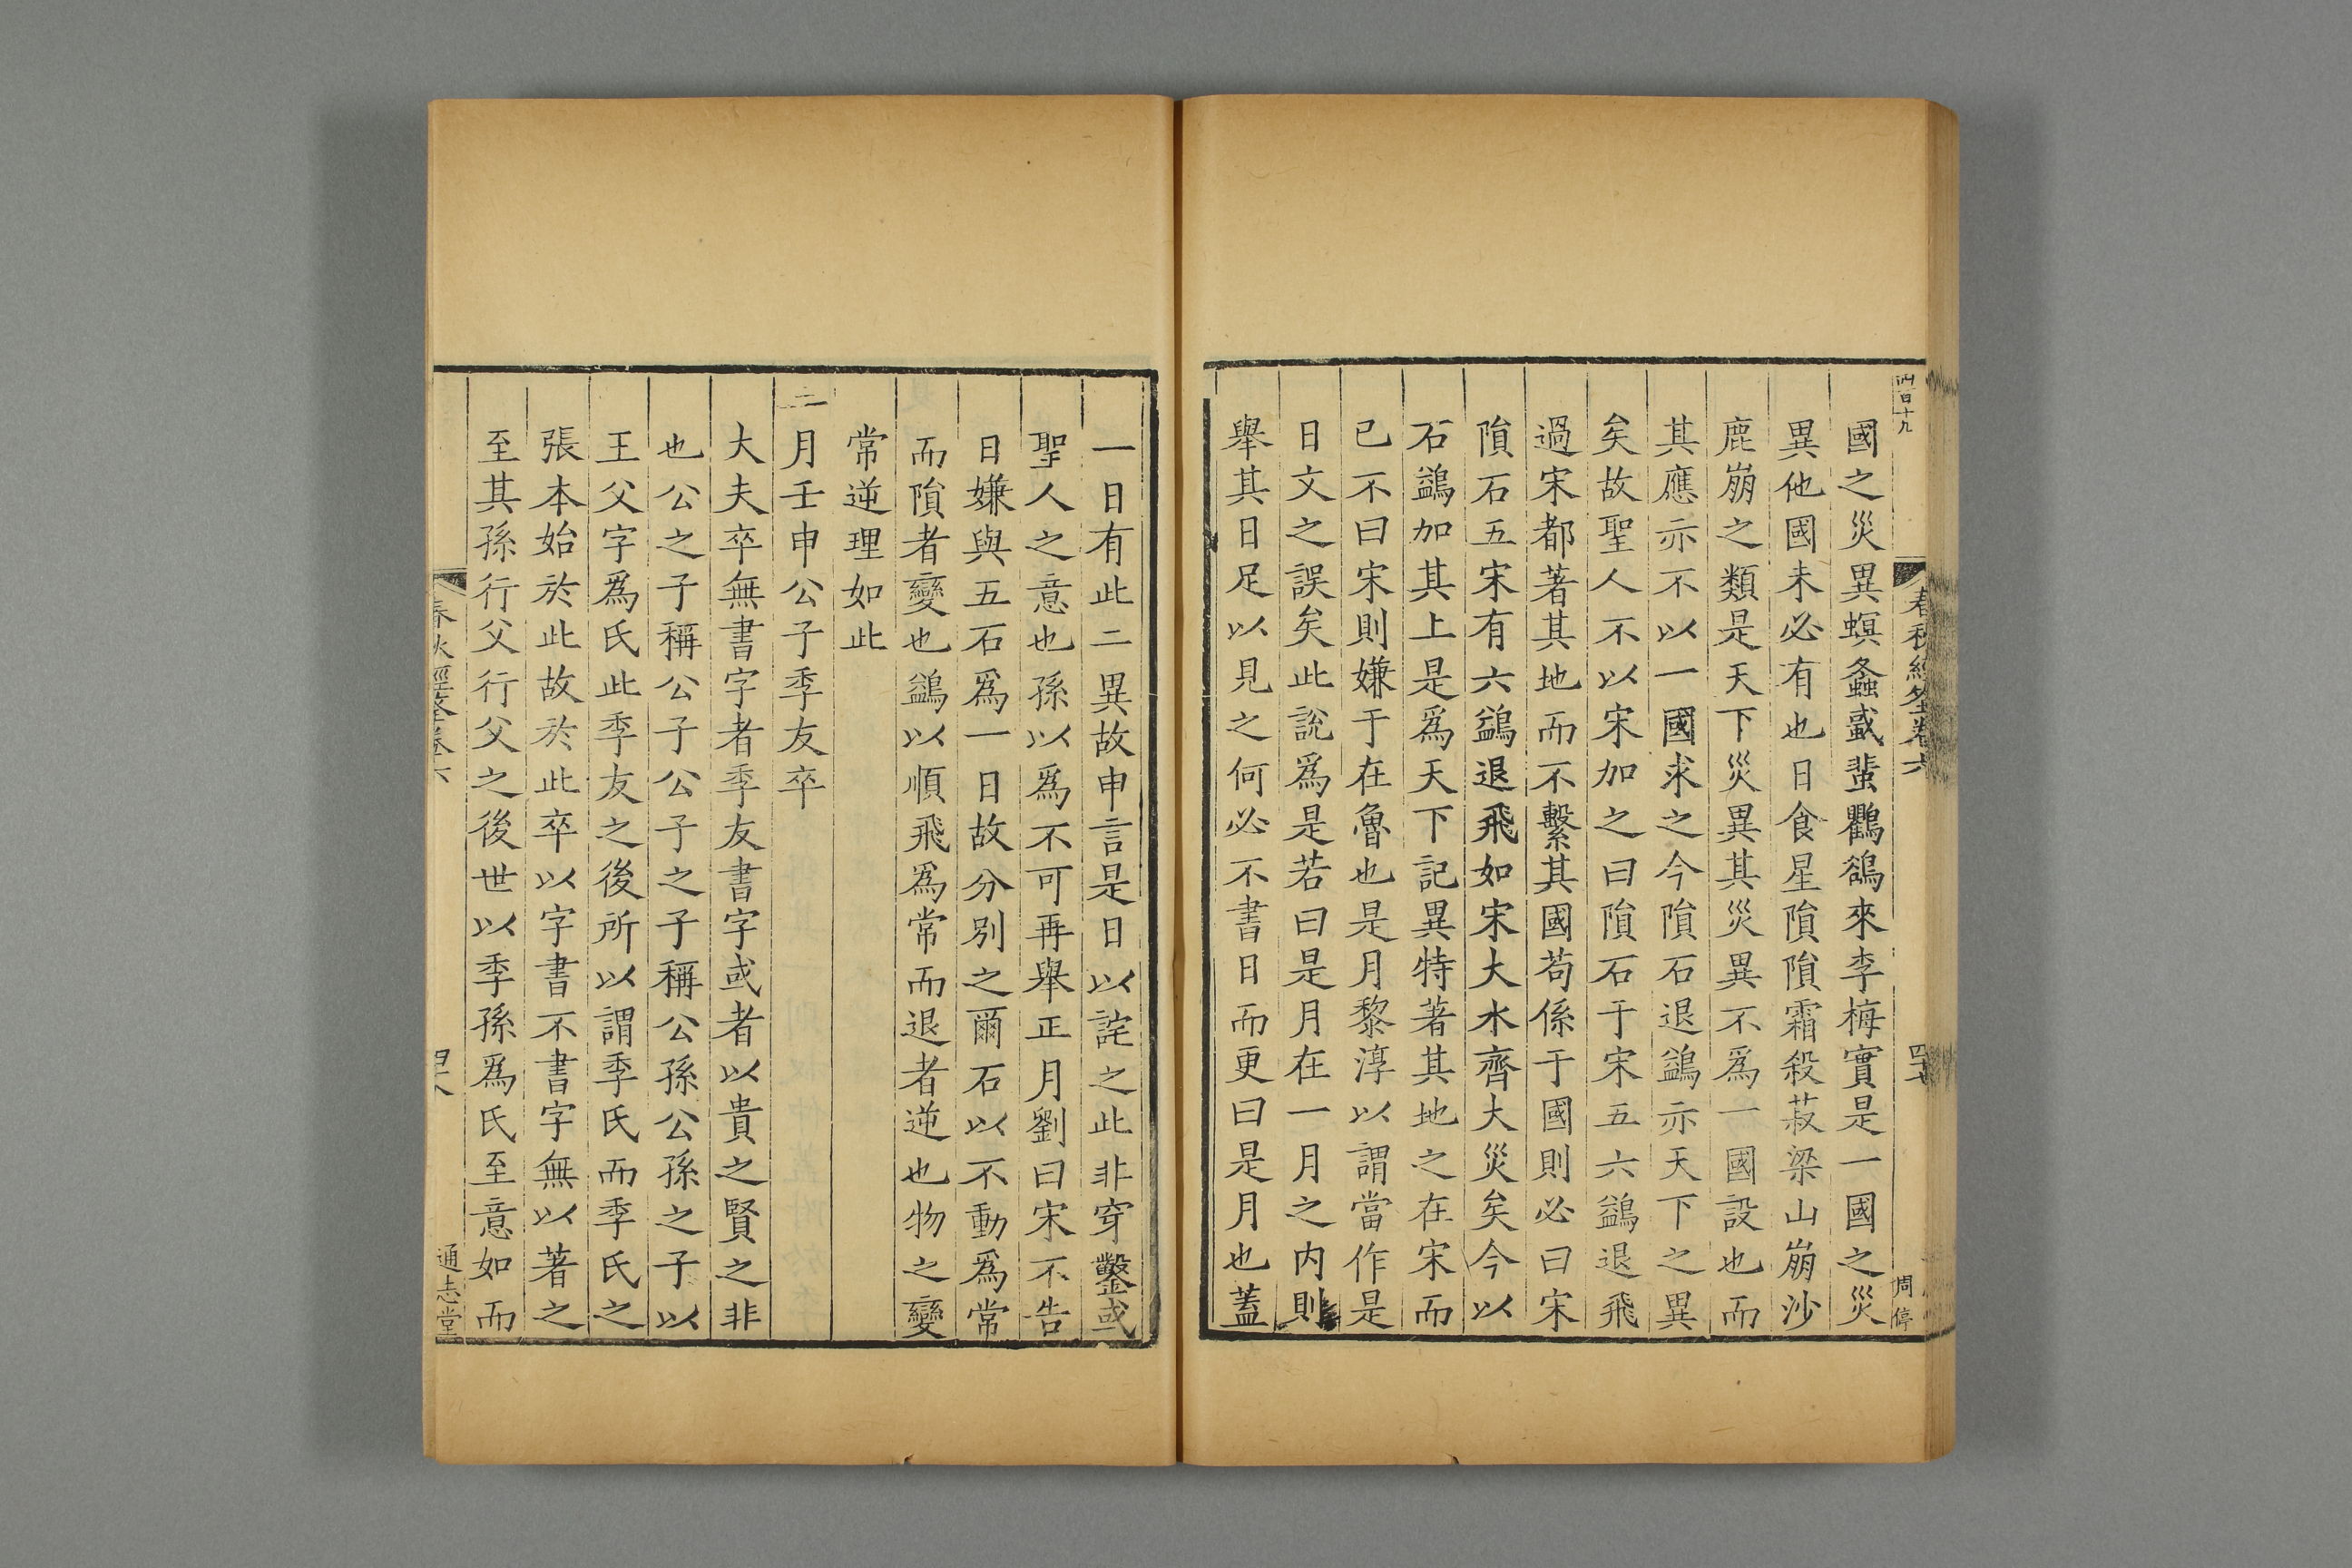 四百十九
春秋經筌卷六
四十七
周停
國之災異螟螽蜮蜚鸜鵒來李梅實是一國之災
異他國未必有也日食星隕隕霜殺菽梁山崩沙
鹿崩之類是天下災異其災異不爲一國設也而
其應亦不以一國求之今隕石退鷁亦天下之異
矣故聖人不以宋加之曰隕石于宋五六鷁退飛
過宋都著其地而不繫其國苟係于國則必曰宋
隕石五宋有六鷁退飛如宋大水齊大災矣今以
石鷁加其上是爲天下記異特著其地之在宋而
已不曰宋則嫌于在魯也是月黎淳以謂當作是
日文之誤矣此說爲是若曰是月在一月之內則
舉其日足以見之何必不書日而更曰是月也蓋
一日有此二異故申言是日以詫之此非穿鑿或
聖人之意也孫以爲不可再舉正月劉曰宋不告
日嫌與五石爲一日故分別之爾石以不動爲常
而隕者變也鷁以順飛爲常而退者逆也物之變
常逆理如此
二月壬申公子季友卒
大夫卒無書字者季友書字或者以貴之賢之非
也公之子稱公子公子之子稱公孫公孫之子以
王父字爲氏此季友之後所以謂季氏而季氏之
張本始於此故於此卒以字書不書字無以著之
至其孫行父行父之後世以季孫爲氏至意如而
春秋經筌卷六
四十八
通志堂